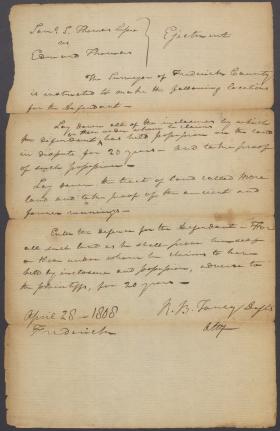 Saml. S. Thomas Lessee
vs
Edward Thomas
Ejectment
The Surveyor of Frederick County
is instructed to make the following locations
for the Defendant -
Lay down all of the inclosures by which
or those under whom he claims
the defendant has held possession in the land
in dispute for 20 years - and take proof
of such possession -
Lay down the tract of land called
land and take proof of the ancient and
former
Enter the defence for the Defendant - For
all such land as he shall prove himself
or those under whom he claims to have
held by inclosure and possession, adverse to
the plaintiffs, for 20 years -
April 28 - 1808
Frederick
R. B. Taney Defts
Atty